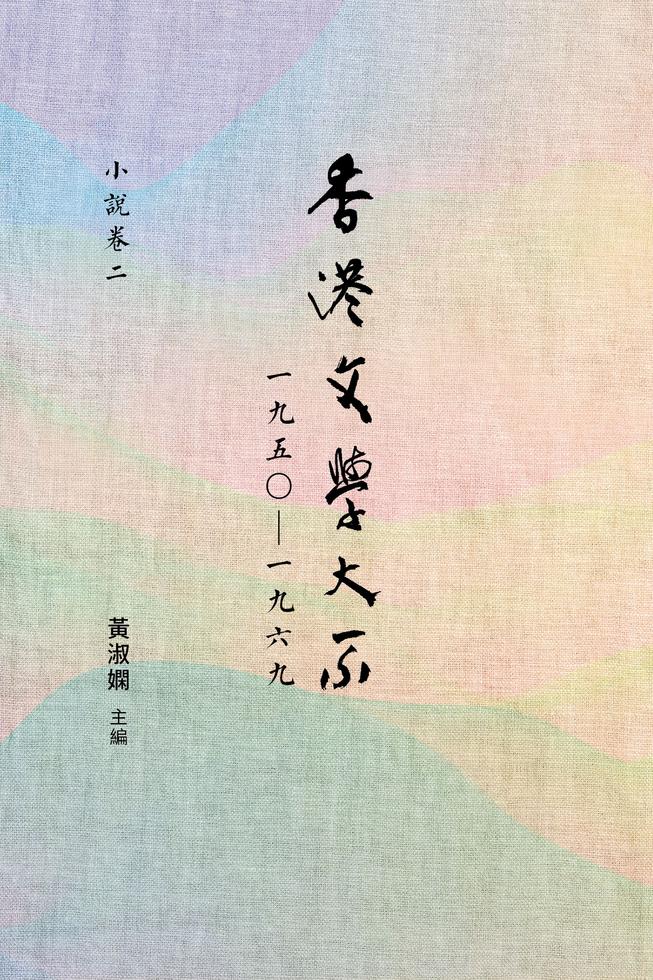 香港文學大系
一九五〇—一九六九
小說卷二
黃淑嫻 主編